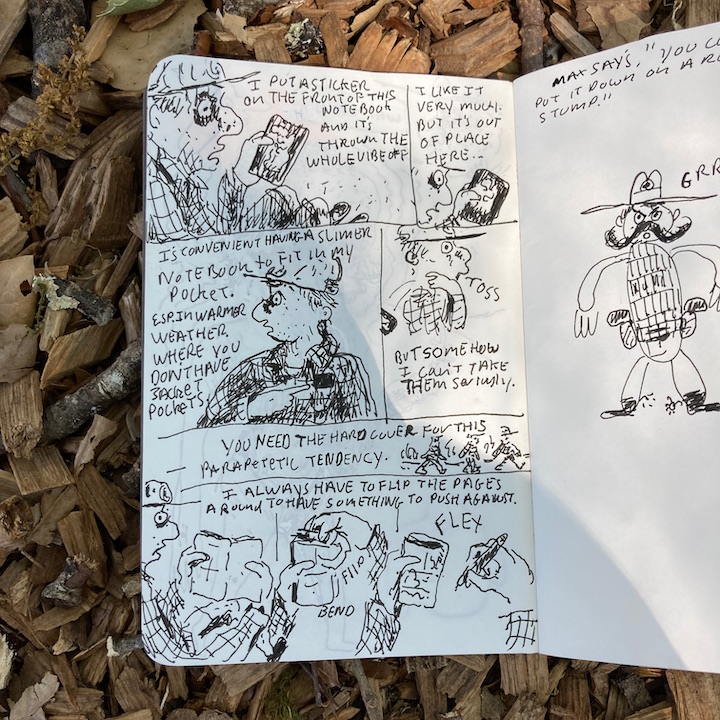 I PUT A STICKER
ON THE FRONT OF THIS
NOTEBOOK
AND IT'S
THROWN THE
WHOLE VIBE OFF
I LIKE IT
VERY MUCH.
BUT IT'S OUT
OF PLACE
HERE...
IS CONVENIENT HAVING A SLIMER
NOTEBOOK TO FIT IN MY
POCKET.
ESP IN WARMER
WEATHER
WHERE YOU
DON'T HAVE
JACKET
POCKETS.
TOSS
BUT SOMEHOW
I CAN'T TAKE
THEM SERIUSLY.
YOU NEED THE HARD COVER FOR THIS
PARAPETETIC TENDENCY.
I ALWAYS HAVE TO FLIP THE PAGES
AROUND TO HAVE SOMETHING TO PUSH AGAINST.
FLIP
BEND
FLEX
MAX SAYS, "YOU C
PUT IT DOWN ON A RO
STUMP."
GRR